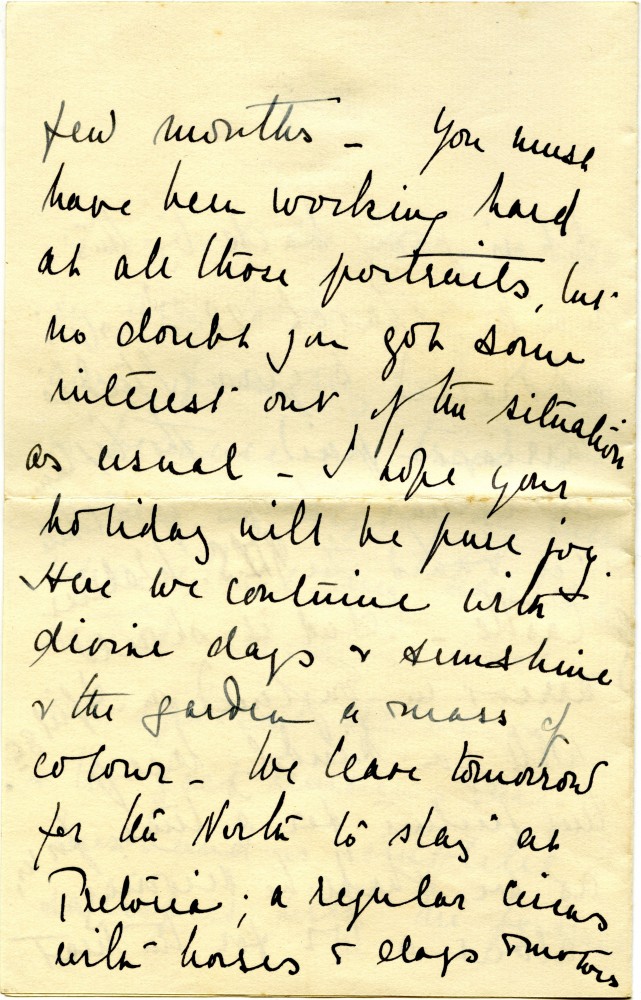 few months – You must
have been working hard
at all those portraits, but
no doubt you got some
interest out of the situation
as usual – I hope your
holiday will be pure joy.
Here we continue with
divine days & sunshine
& the garden a mass of
colour – We leave tomorrow
for the North to stay at
Pretoria; a regular circus
with horses & dogs & motors